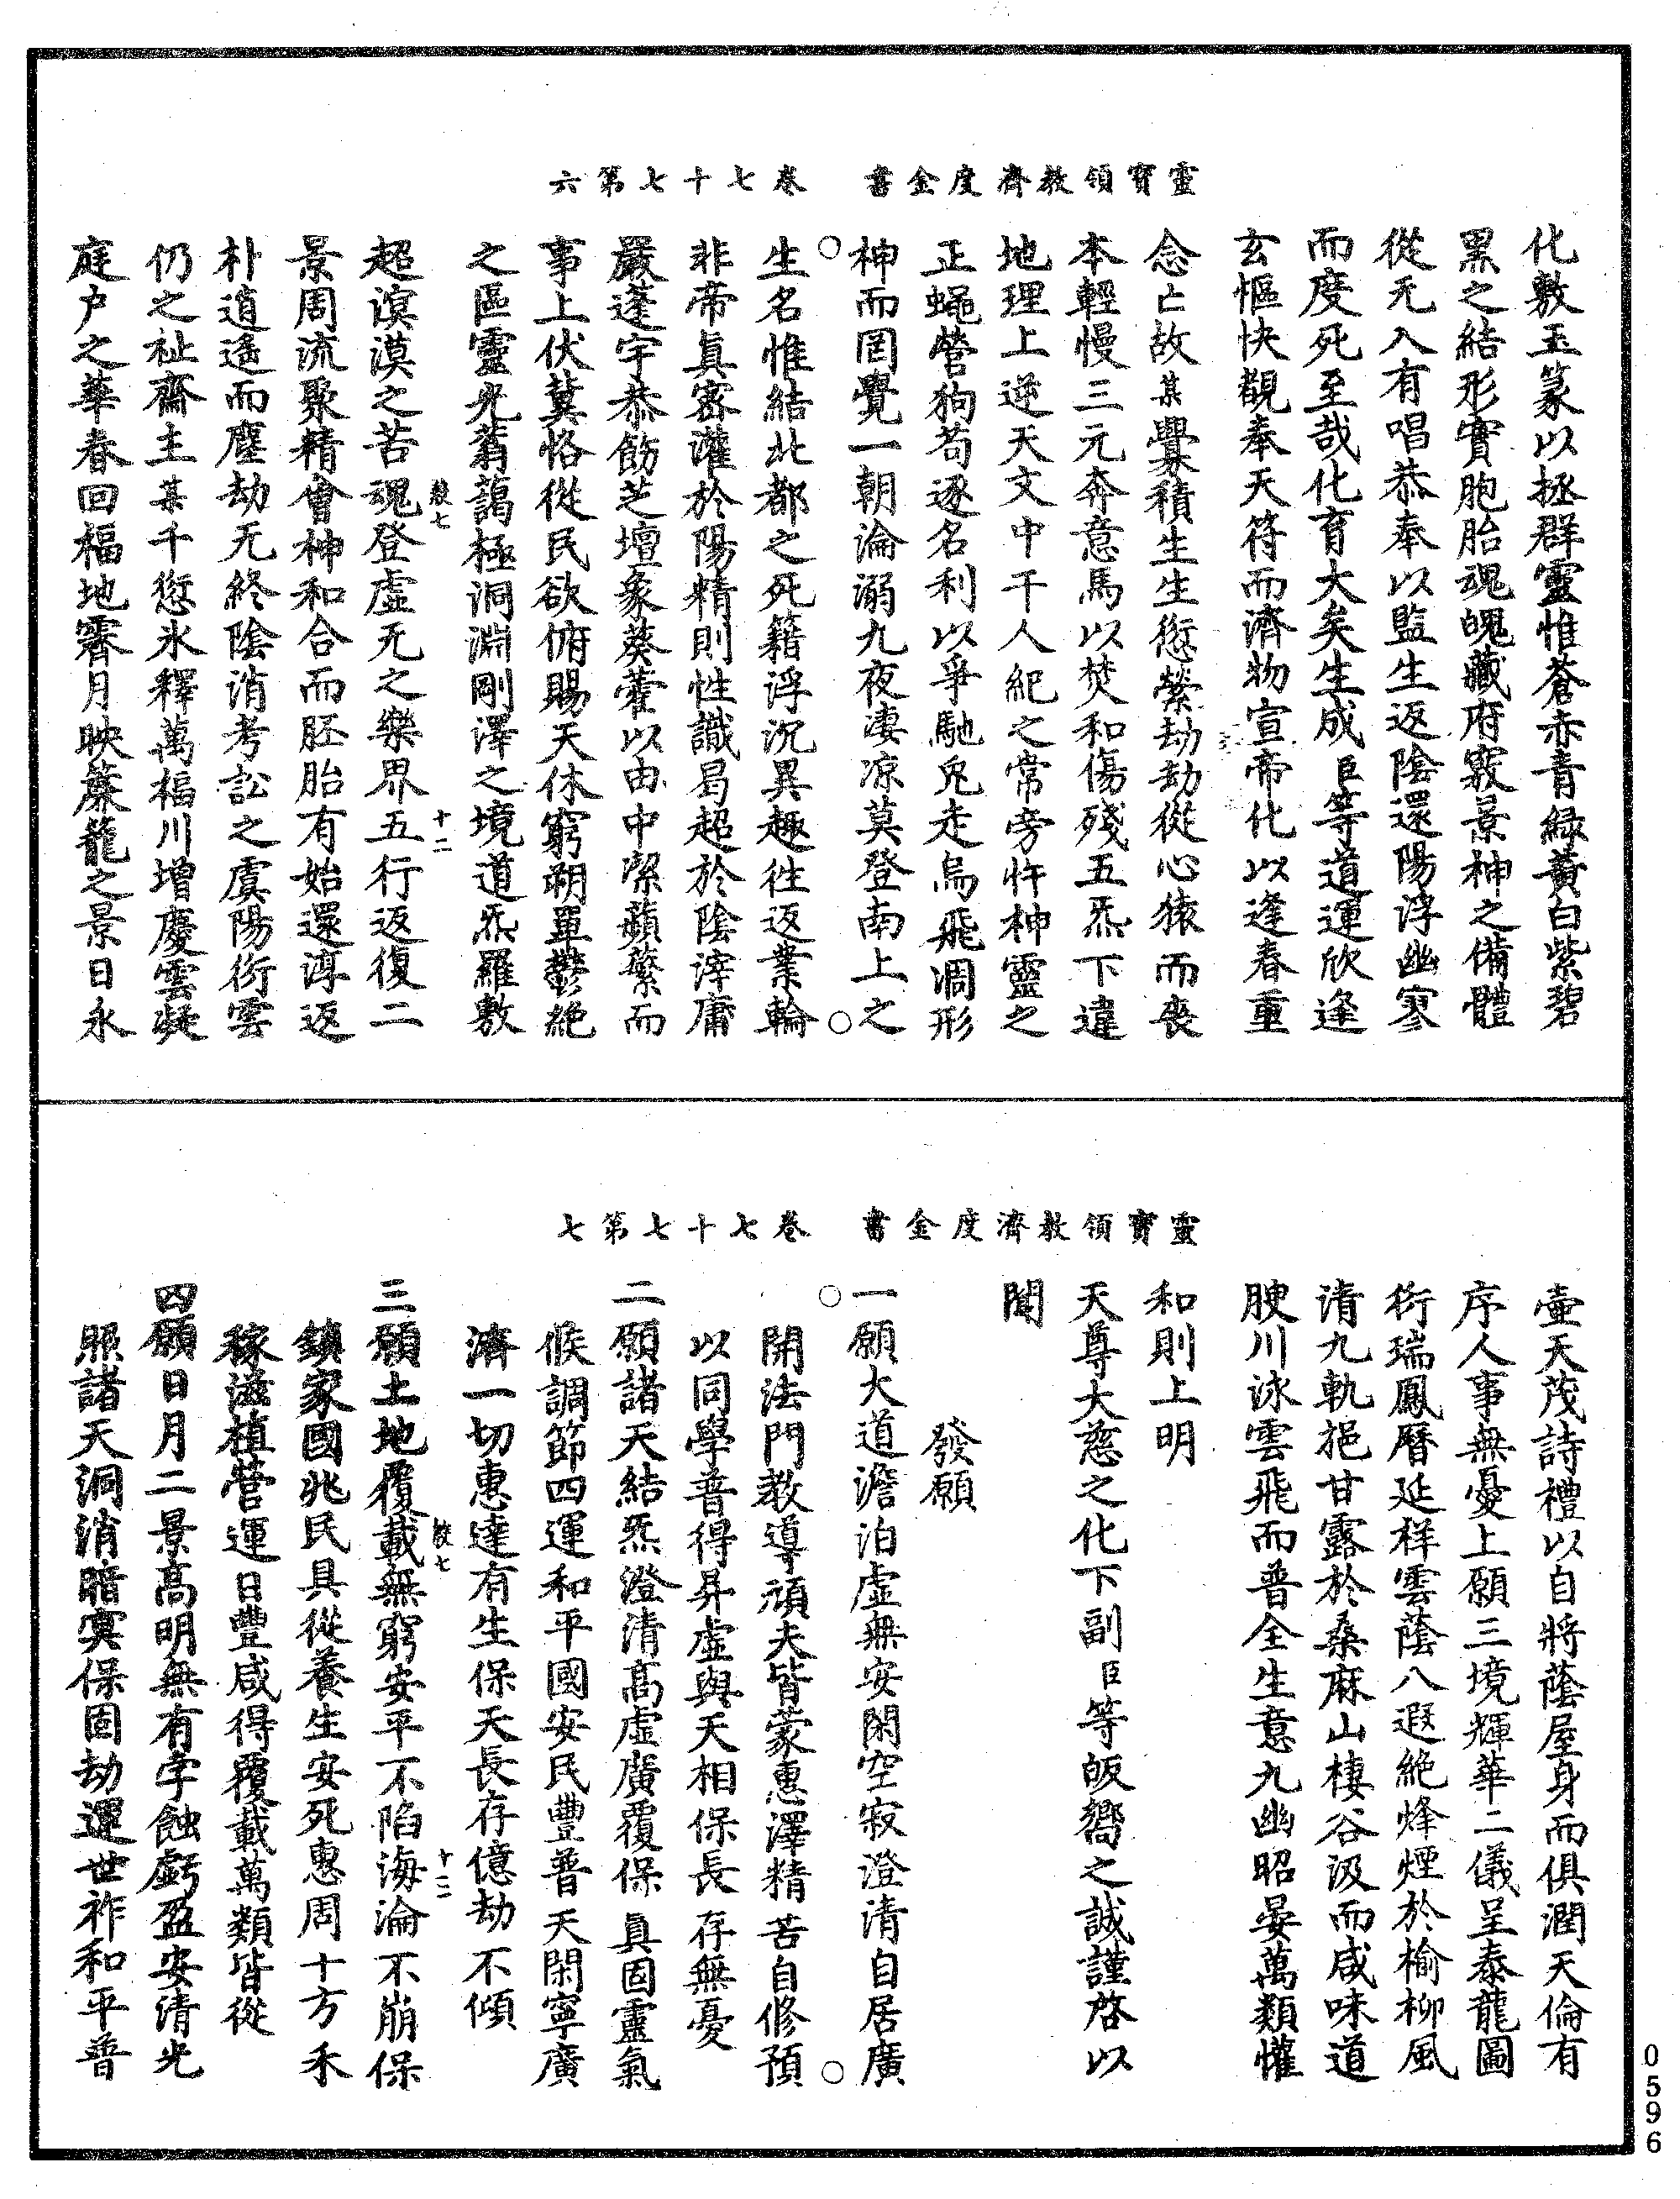 靈寶領教濟度金書　卷七十七第六
化敷玉篆以拯群靈惟蒼赤青綠黃白紫碧
黑之結形實胞胎魂魄藏府竅景神之備體
從无入有唱恭奉以監生返陰還陽浮幽寥
而度死至哉化育大矣生成臣等道運欣逢
玄樞快覩奉天符而濟物宣帝化以逢春重
念亡故某釁積生生愆縈劫劫從心猿而喪
本輕慢三元奔意馬以焚和傷殘五炁下違
地理上逆天文中干人紀之常旁忤神靈之
正蠅營狗苟逐名利以爭馳兔走烏飛凋形
神而罔覺一朝淪溺九夜淒涼莫登南上之
生名惟結北都之死籍浮沉異趣往返業輪
非帝真密灌於陽精則性識曷超於陰滓庸
嚴蓬宇恭飭芝壇象葵藿以由中絜蘋蘩而
事上伏冀恪從民欲俯賜天休窮朔單鬱絕
之區靈光蓊藹極洞淵剛澤之境道炁羅敷
超溟漠之苦魂登虛无之樂界五行返復二
敷七　十二
景周流聚精會神和合而胚胎有始還淳返
朴逍遙而塵劫无終陰消考訟之虞陽衍雲
仍之祉齋主某千愆氷釋萬福川增慶雲凝
庭户之華春回福地霽月映簾籠之景日永
靈寶領教濟度金書　卷七十七第七
壺天茂詩禮以自將蔭屋身而俱潤天倫有
序人事無憂上願三境輝華二儀呈泰龍圖
衍瑞鳳曆延祥雲蔭八遐絕烽煙於榆柳風
清九軌挹甘露於桑麻山棲谷汲而咸味道
腴川泳雲飛而普全生意九幽昭晏萬類懽
和則上明
天尊大慈之化下副臣等皈嚮之誠謹啓以
聞
發願
一願大道澹泊虛無安閑空寂澄清自居廣
開法門教導頑夫皆蒙惠澤精苦自修預
以同學普得昇虛與天相保長存無憂
二願諸天結炁澄清高虛廣覆保真固靈氣
候調節四運和平國安民豐普天閑寧廣
濟一切惠達有生保天長存億劫不傾
三願土地覆載無窮安平不陷海淪不崩保
敷七　十三
鎮家國兆民具從養生安死惠周十方禾
稼滋植營運日豐咸得覆載萬類皆從
四願日月二景高明無有孛蝕虧盈安清光
照諸天洞消暗冥保固劫運世祚和平普
0596